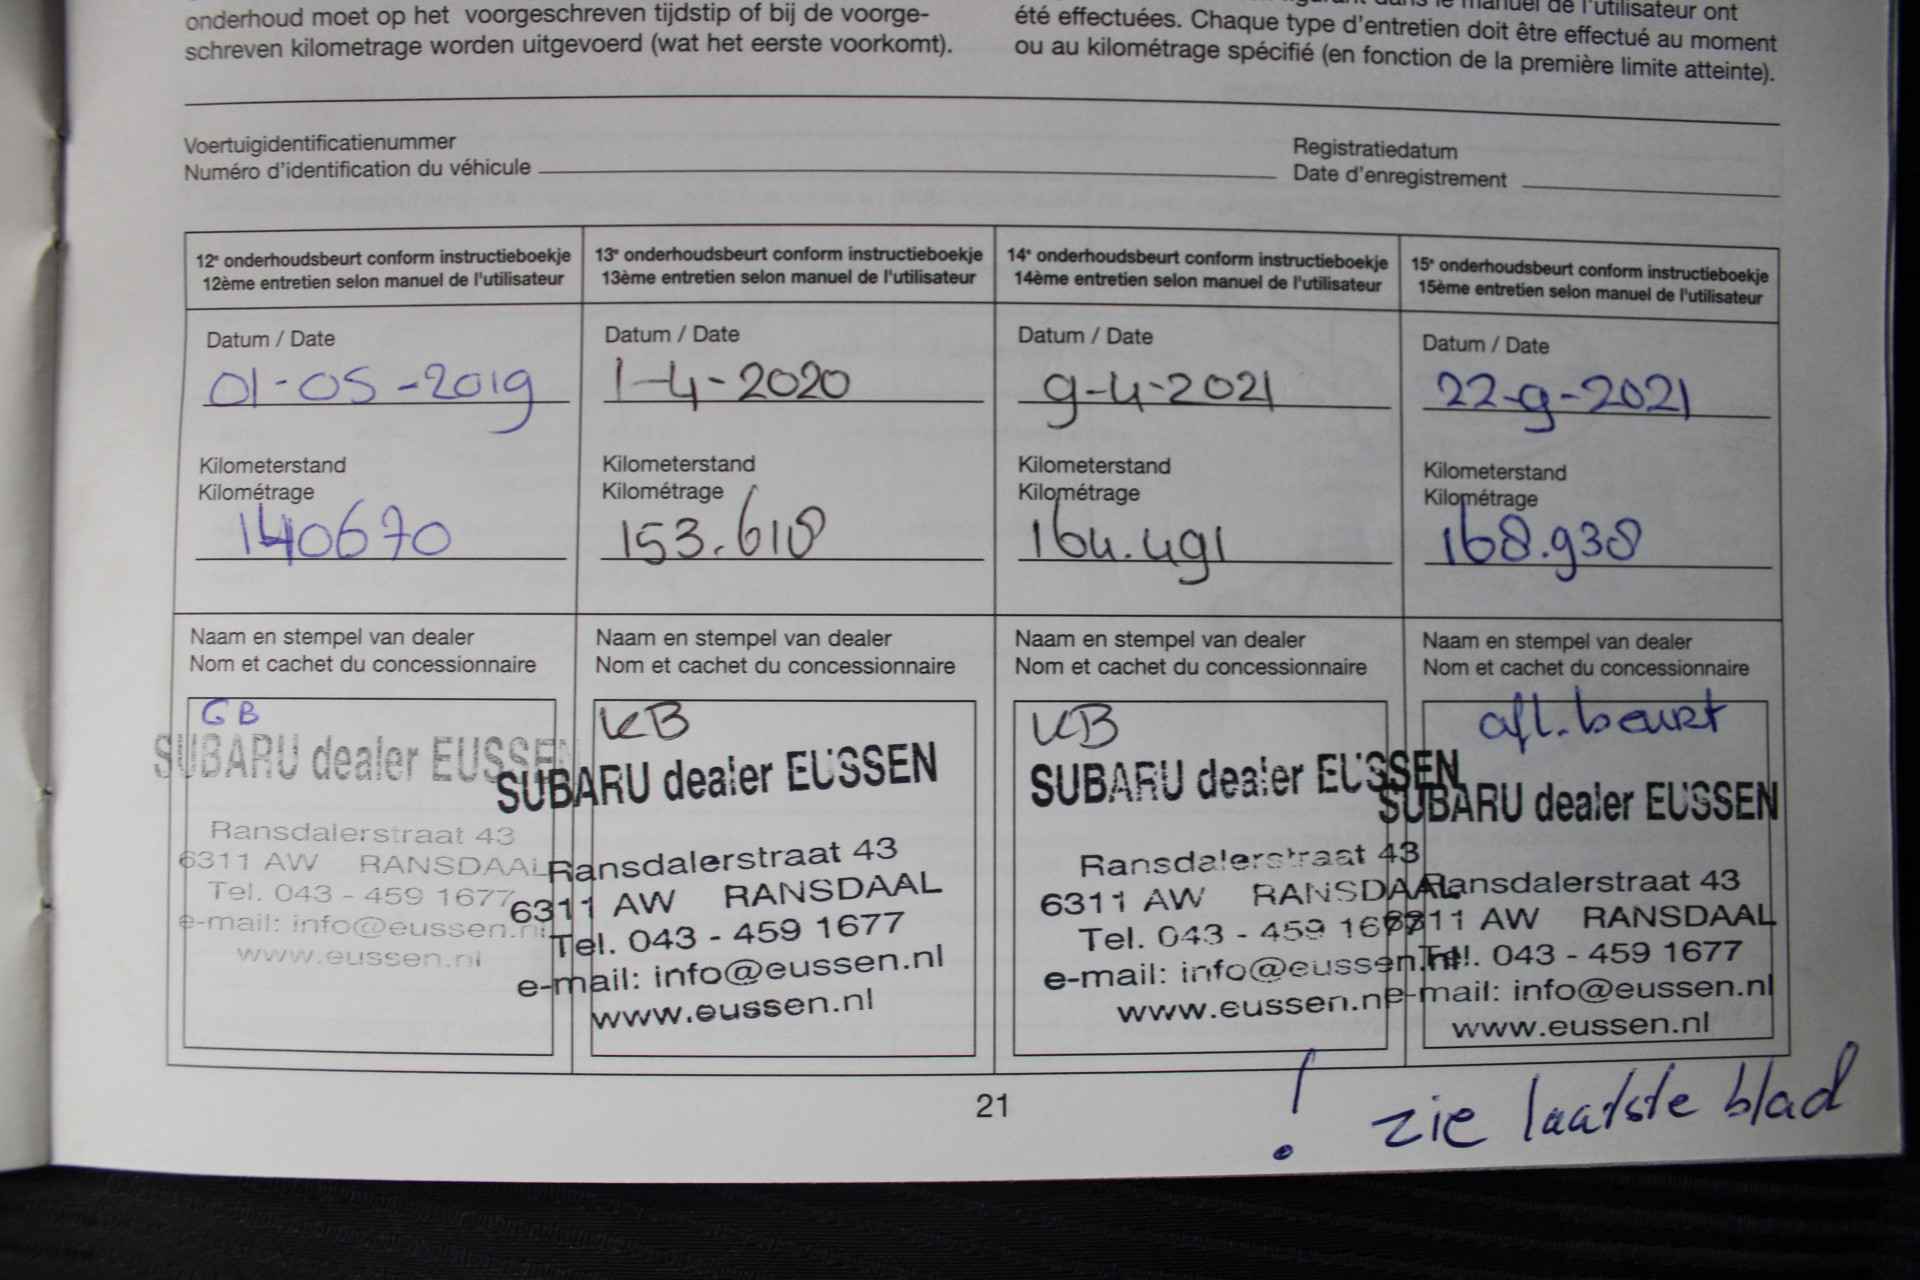 onderhoud moet op het voorgeschreven tijdstip of bij de voorge-
schreven kilometrage worden uitgevoerd (wat het eerste voorkomt).
dans le manuel de l'utilisateur ont
été effectuées. Chaque type d'entretien doit être effectué au moment
ou au kilométrage spécifié (en fonction de la première limite atteinte).
Voertuigidentificatienummer
Numéro d'identification du véhicule
Registratiedatum
Date d'enregistrement
12e onderhoudsbeurt conform instructieboekje
12ème entretien selon manuel de l'utilisateur
Datum / Date
01-05-2019
Kilometerstand
Kilométrage
140670
Naam en stempel van dealer
Nom et cachet du concessionnaire
GB
SUBARU dealer EUSSEN
Ransdalerstraat 43
6311 AW RANSDAAL
Tel. 043 - 459 1677
e-mail: info@eussen.nl
www.eussen.nl
13e onderhoudsbeurt conform instructieboekje
13ème entretien selon manuel de l'utilisateur
Datum / Date
1-4-2020
Kilometerstand
Kilométrage
153.618
Naam en stempel van dealer
Nom et cachet du concessionnaire
KB
SUBARU dealer EUSSEN
Ransdalerstraat 43
6311 AW RANSDAAL
Tel. 043 - 459 1677
e-mail: info@eussen.nl
www.eussen.nl
14e onderhoudsbeurt conform instructieboekje
14ème entretien selon manuel de l'utilisateur
Datum / Date
9-4-2021
Kilometerstand
Kilométrage
164.491
Naam en stempel van dealer
Nom et cachet du concessionnaire
KB
SUBARU dealer EUSSEN
Ransdalerstraat 43
6311 AW RANSDAAL
Tel. 043 - 459 1677
e-mail: info@eussen.nl
www.eussen.nl
15e onderhoudsbeurt conform instructieboekje
15ème entretien selon manuel de l'utilisateur
Datum / Date
22-9-2021
Kilometerstand
Kilométrage
168.938
Naam en stempel van dealer
Nom et cachet du concessionnaire
afl. beurt
SUBARU dealer EUSSEN
Ransdalerstraat 43
6311 AW RANSDAAL
Tel. 043 - 459 1677
e-mail: info@eussen.nl
www.eussen.nl
21
! zie laatste blad